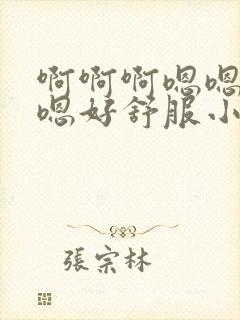 啊啊啊嗯嗯
嗯好舒服小
張宗林